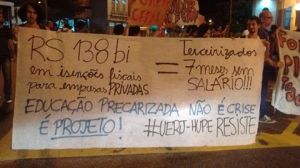 R$ 138 bi
em isenções fiscais
para empresas PRIVADAS
=
Terceirizados
7 meses sem
SALÁRIO!!!
EDUCAÇÃO PRECARIZADA NÃO É CRISE
É PROJETO! #UERJ-HUPE RESISTE